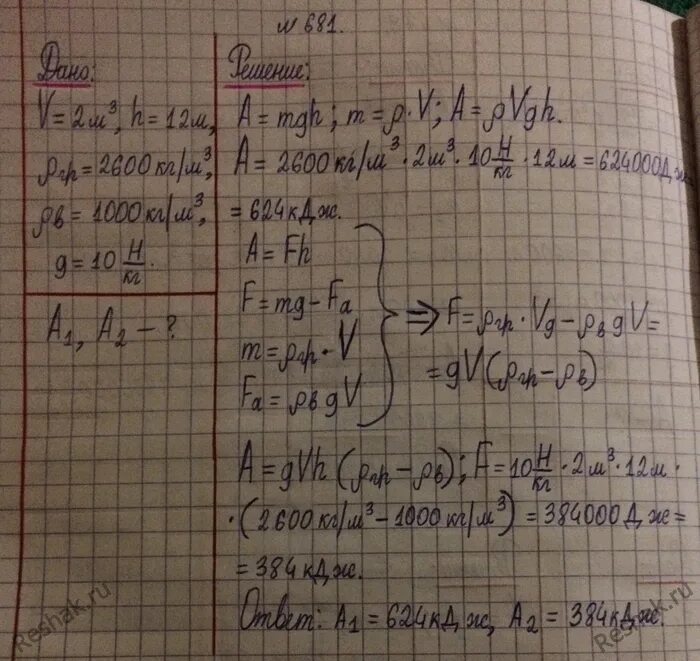 №681.
Дано:
V=2м³, h=12м,
ρгр=2600кг/м³,
ρв=1000кг/м³,
g=10 Н/кг.
A₁, A₂ – ?
Решение:
A=mgh; m=ρ·V; A=ρVgh.
A=2600кг/м³·2м³·10 Н/кг·12м=624000Дж=
=624кДж.
A=Fh
F=mg–Fа
m=ρгр·V
Fа=ρвgV
⇒ F=ρгр·Vg–ρвgV=
=gV(ρгр–ρв)
A=gVh(ρгр–ρв); F=10 Н/кг·2м³·12м·
·(2600кг/м³–1000кг/м³)=384000Дж=
=384кДж.
Ответ: A₁=624кДж, A₂=384кДж.
Reshak.ru
Reshak.ru